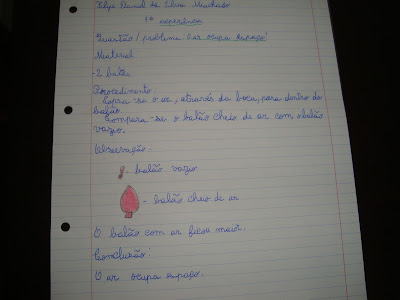 Filipe Daniel da Silva Machado
1ª experiência
Questão/problema: O ar ocupa espaço?
Material
-2 balões
Procedimento
Sopra-se o ar, através da boca, para dentro do
balão.
Compara-se o balão cheio de ar com o balão
vazio.
Observação:
- balão vazio
- balão cheio de ar
O balão com ar ficou maior.
Conclusão:
O ar ocupa espaço.